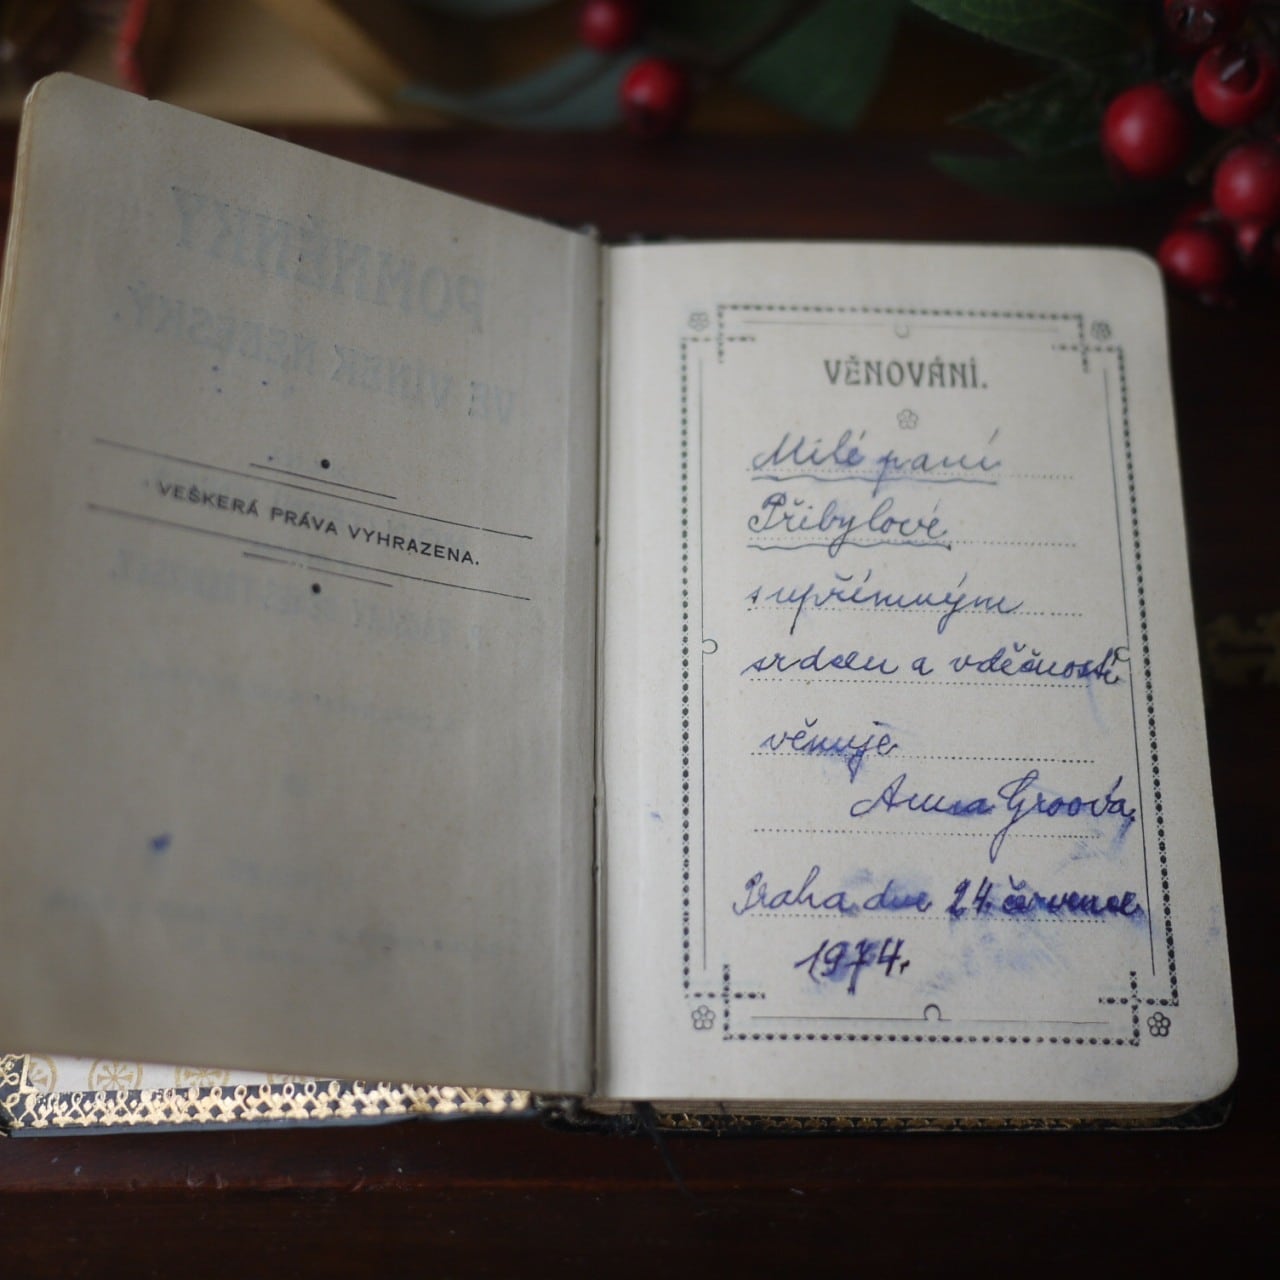 POMNĚNKY
VE VÍNEK NEBESKÝ.
VEŠKERÁ PRÁVA VYHRAZENA.
VĚNOVÁNÍ.
Milé paní
Přibylové
s upřímným
srdcem a vděčností
věnuje
Anna Groová
Praha dne 24. července
1974.